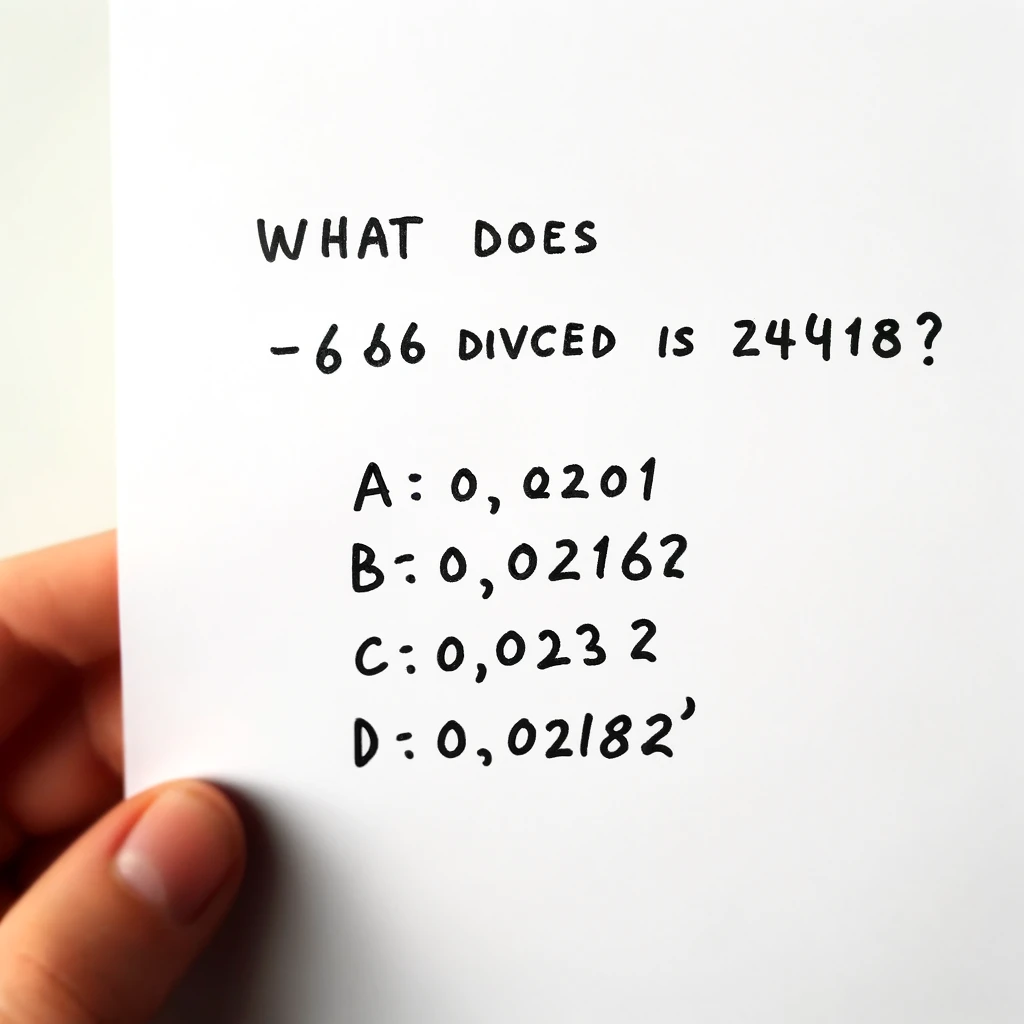 WHAT DOES
-666 DIVCED IS 24418?
A: 0,0201
B: 0,02162
C: 0,0232
D: 0,02182'